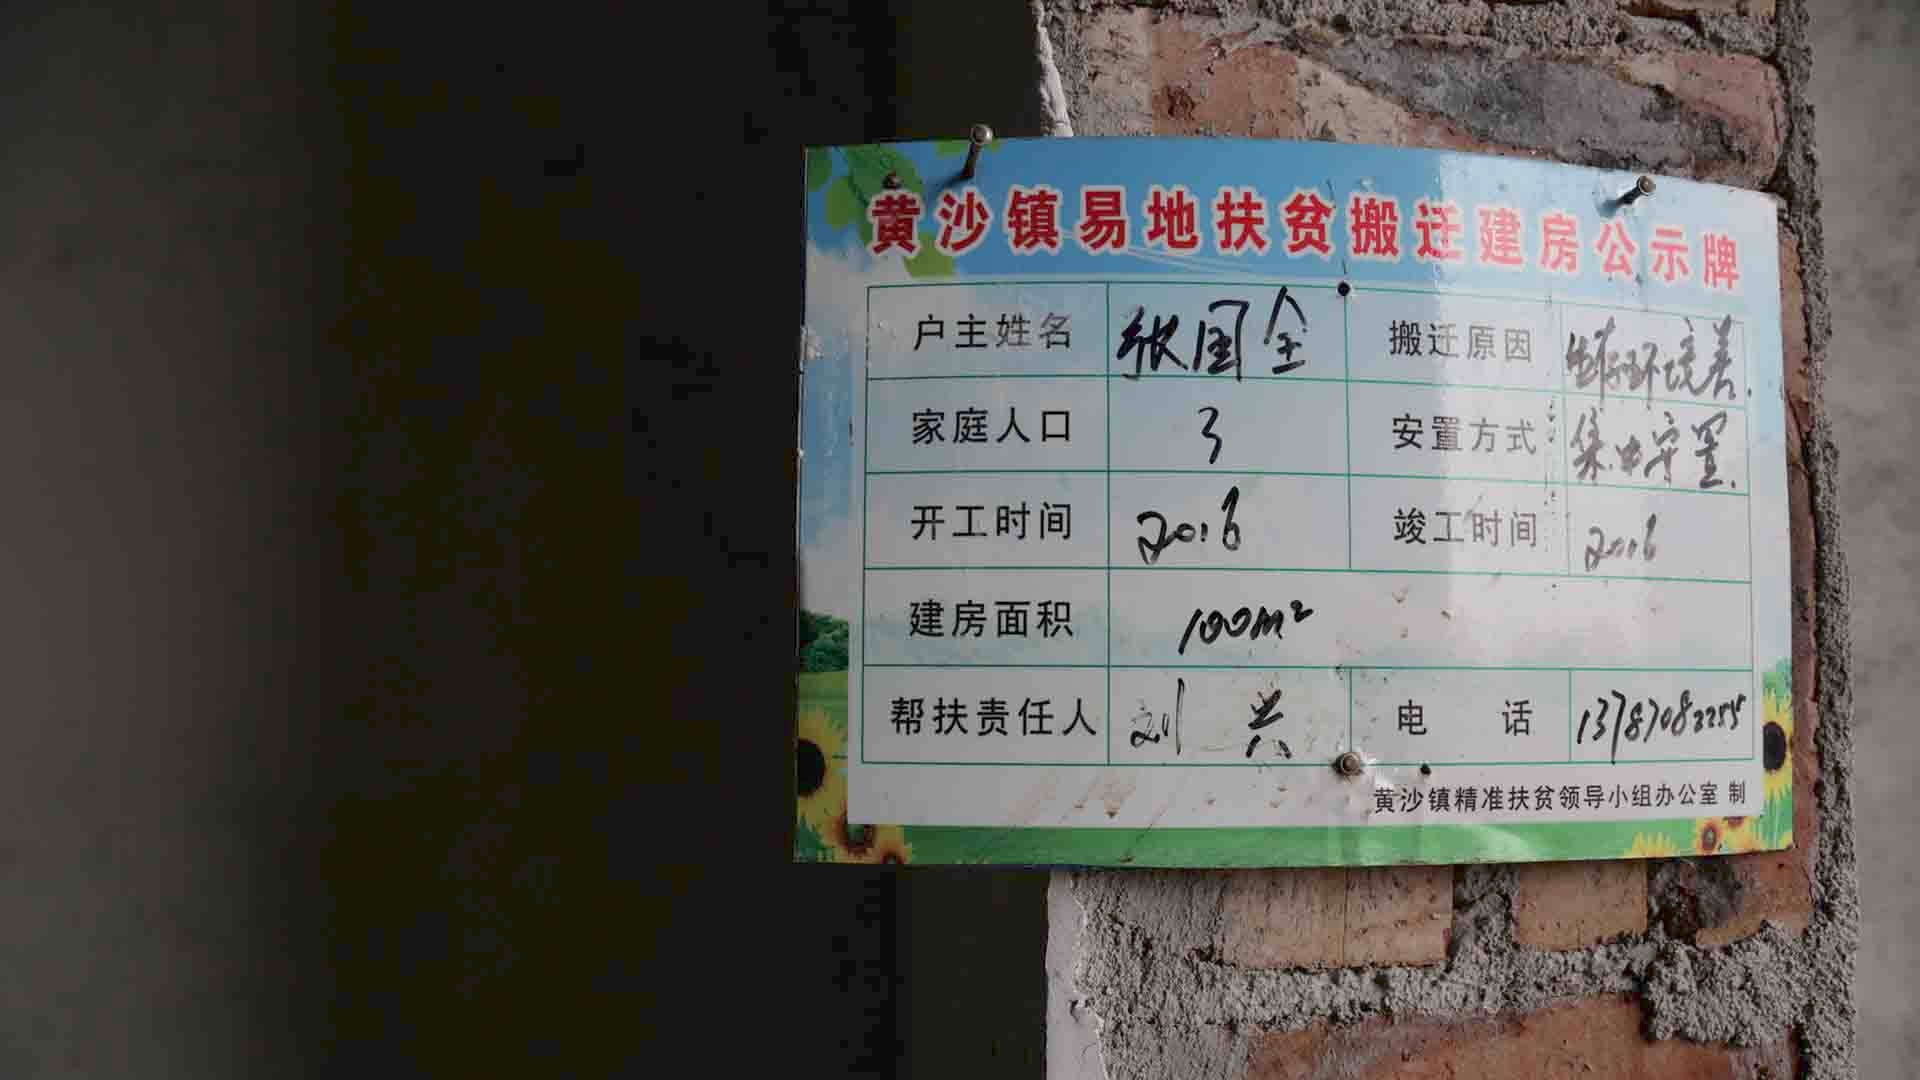 黄沙镇易地扶贫搬迁建房公示牌
户主姓名 张国全 搬迁原因 生存环境差.
家庭人口 3 安置方式 集中安置.
开工时间 2016 竣工时间 2016
建房面积 100m²
帮扶责任人 刘 兴 电 话 13787082255
黄沙镇精准扶贫领导小组办公室 制